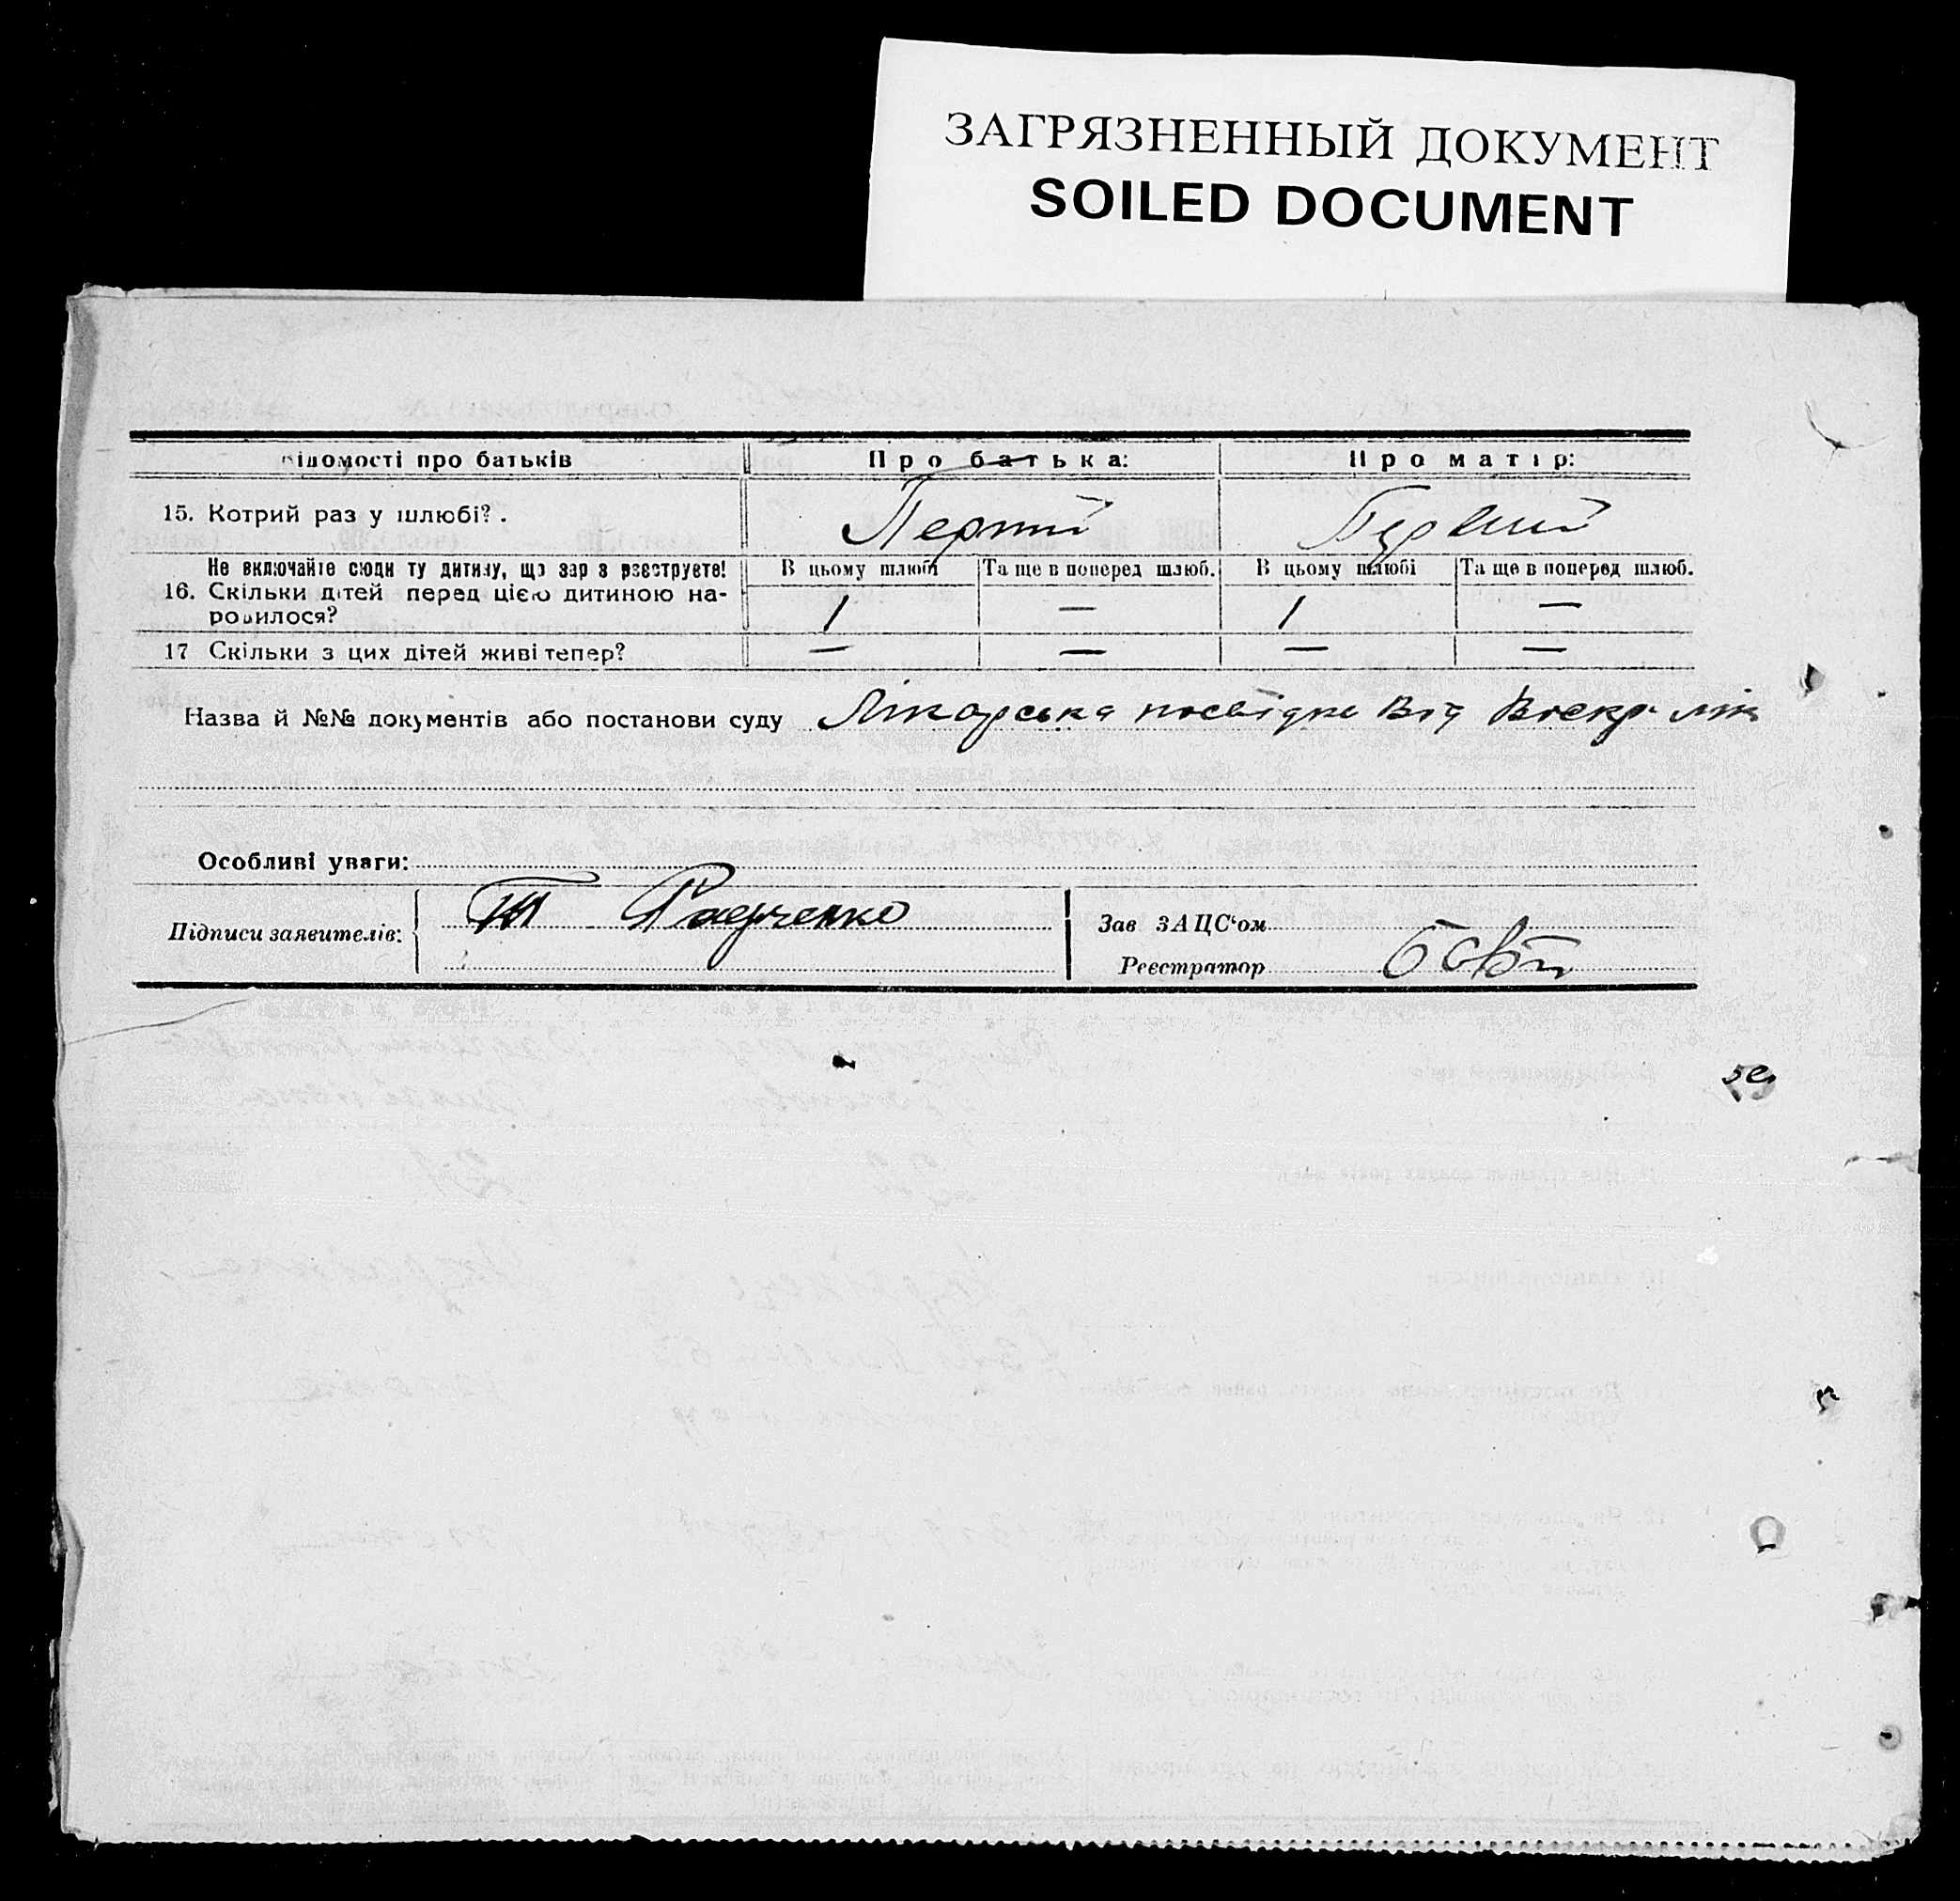 ЗАГРЯЗНЕННЫЙ ДОКУМЕНТ
SOILED DOCUMENT
Відомості про батьків Про батька: Про матір:
15. Котрий раз у шлюбі? . Перший Перший
Не включайте сюди ту дитину, що зараз реєструєте! В цьому шлюбі Та ще в поперед шлюб. В цьому шлюбі Та ще в поперед шлюб.
16. Скільки дітей перед цією дитиною на- 1 — 1 —
родилося?
17 Скільки з цих дітей живі тепер? — — — —
Назва й №№ документів або постанови суду Лікарська посвідка від Воскр. лік
Особливі уваги:
Підписи заявителів: Радченко
Зав ЗАЦС‘ом
Реєстратор